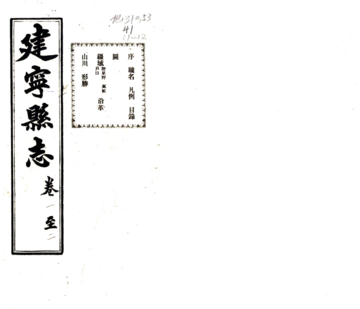 建寧縣志 卷一至二
序 職名 凡例 目錄
圖
疆域 沿革
山川 形勝